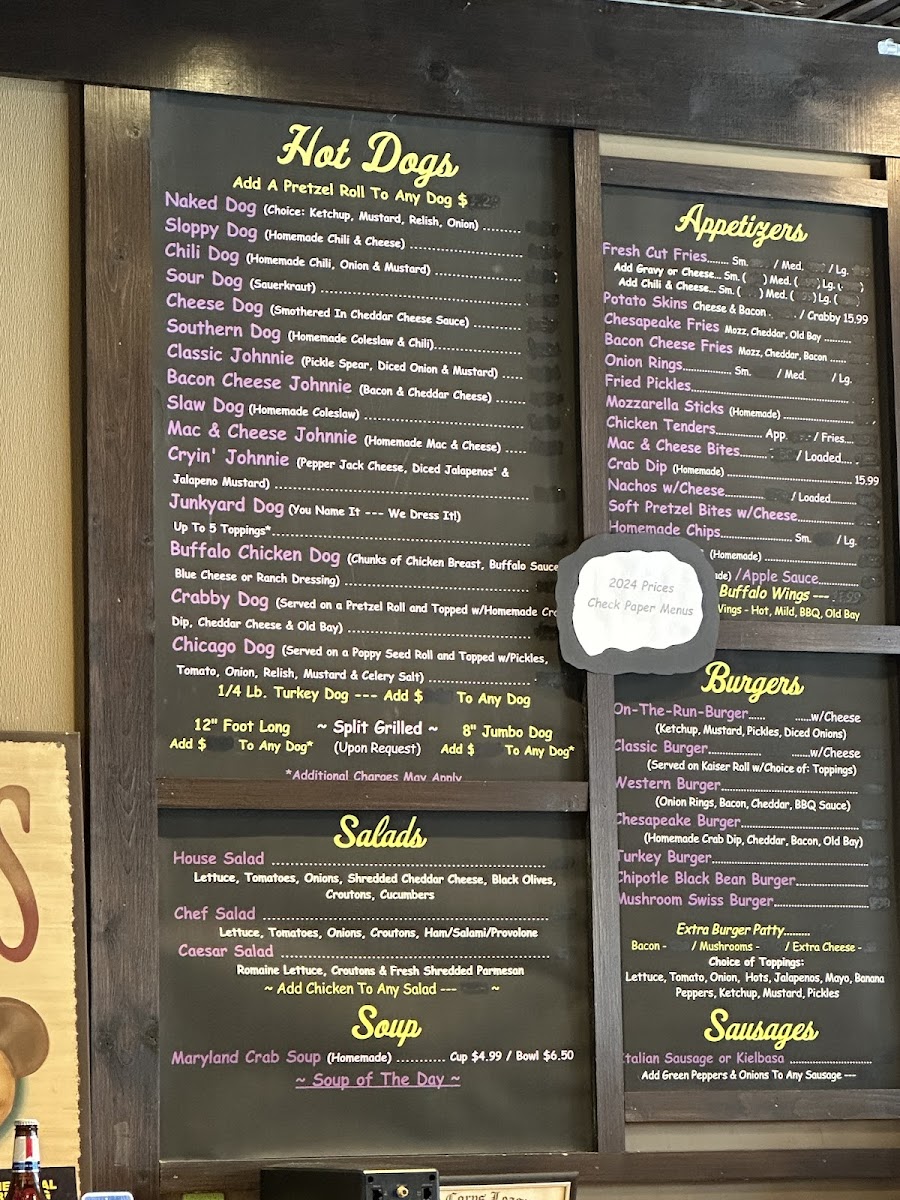 Hot Dogs
Add A Pretzel Roll To Any Dog $
Naked Dog (Choice: Ketchup, Mustard, Relish, Onion) ........
Sloppy Dog (Homemade Chili & Cheese) ........................
Chili Dog (Homemade Chili, Onion & Mustard) ...................
Sour Dog (Sauerkraut) ..........................................
Cheese Dog (Smothered In Cheddar Cheese Sauce) ..........
Southern Dog (Homemade Coleslaw & Chili)...................
Classic Johnnie (Pickle Spear, Diced Onion & Mustard) .....
Bacon Cheese Johnnie (Bacon & Cheddar Cheese) ......
Slaw Dog (Homemade Coleslaw) ..................................
Mac & Cheese Johnnie (Homemade Mac & Cheese) .....
Cryin' Johnnie (Pepper Jack Cheese, Diced Jalapenos' &
Jalapeno Mustard) ....................................................
Junkyard Dog (You Name It --- We Dress It!)
Up To 5 Toppings*....................................................
Buffalo Chicken Dog (Chunks of Chicken Breast, Buffalo Sauce
Blue Cheese or Ranch Dressing) ......................................
Crabby Dog (Served on a Pretzel Roll and Topped w/Homemade
Dip, Cheddar Cheese & Old Bay) .....................................
Chicago Dog (Served on a Poppy Seed Roll and Topped w/Pickles,
Tomato, Onion, Relish, Mustard & Celery Salt) ......................
1/4 Lb. Turkey Dog --- Add $ To Any Dog
12" Foot Long ~ Split Grilled ~ 8" Jumbo Dog
Add $ To Any Dog* (Upon Request) Add $ To Any Dog*
*Additional Charges May Apply
Salads
House Salad ..........................................................
Lettuce, Tomatoes, Onions, Shredded Cheddar Cheese, Black Olives,
Croutons, Cucumbers
Chef Salad ............................................................
Lettuce, Tomatoes, Onions, Croutons, Ham/Salami/Provolone
Caesar Salad .........................................................
Romaine Lettuce, Croutons & Fresh Shredded Parmesan
~ Add Chicken To Any Salad --- ~
Soup
Maryland Crab Soup (Homemade) .......... Cup $4.99 / Bowl $6.50
~ Soup of The Day ~
Appetizers
Fresh Cut Fries....... Sm. / Med. / Lg.
Add Gravy or Cheese... Sm. ( ) Med. ( ) Lg. ( )
Add Chili & Cheese... Sm. ( ) Med. ( ) Lg. ( )
Potato Skins Cheese & Bacon / Crabby 15.99
Chesapeake Fries Mozz, Cheddar, Old Bay .........
Bacon Cheese Fries Mozz, Cheddar, Bacon ......
Onion Rings............... Sm. / Med. / Lg.
Fried Pickles........................................
Mozzarella Sticks (Homemade) ......................
Chicken Tenders.............. App. / Fries...
Mac & Cheese Bites......... / Loaded....
Crab Dip (Homemade) ................................ 15.99
Nachos w/Cheese............. / Loaded......
Soft Pretzel Bites w/Cheese..............
Homemade Chips..................... Sm. / Lg.
(Homemade) ............................
/Apple Sauce...........
Buffalo Wings ---
Wings - Hot, Mild, BBQ, Old Bay
2024 Prices
Check Paper Menus
Burgers
On-The-Run-Burger..... ......w/Cheese
(Ketchup, Mustard, Pickles, Diced Onions)
Classic Burger............... ......w/Cheese
(Served on Kaiser Roll w/Choice of: Toppings)
Western Burger...................................
(Onion Rings, Bacon, Cheddar, BBQ Sauce)
Chesapeake Burger..............................
(Homemade Crab Dip, Cheddar, Bacon, Old Bay)
Turkey Burger.......................................
Chipotle Black Bean Burger..................
Mushroom Swiss Burger.......................
Extra Burger Patty.........
Bacon - / Mushrooms - / Extra Cheese -
Choice of Toppings:
Lettuce, Tomato, Onion, Hots, Jalapenos, Mayo, Banana
Peppers, Ketchup, Mustard, Pickles
Sausages
Italian Sausage or Kielbasa .....................
Add Green Peppers & Onions To Any Sausage ---